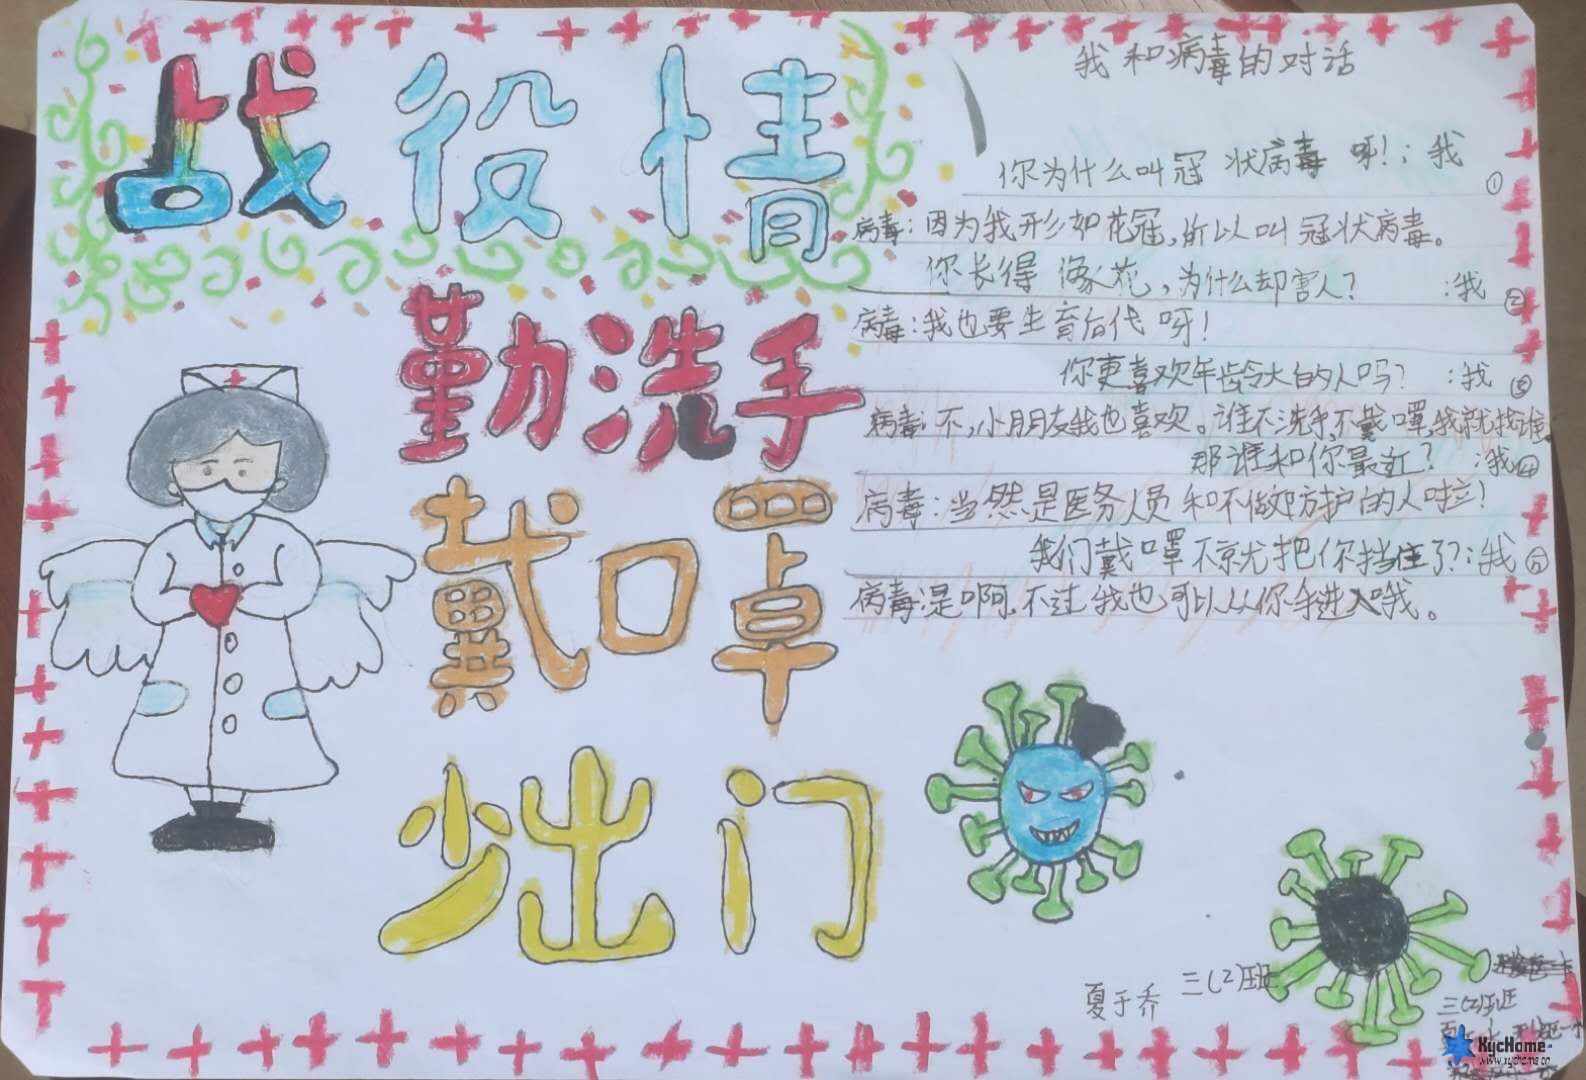 战役情
勤洗手
戴口罩
少出门
我和病毒的对话
你为什么叫冠状病毒呀!:我 ①
病毒:因为我形如花冠,所以叫冠状病毒。
你长得像花,为什么却害人? :我 ②
病毒:我也要生育后代呀!
你更喜欢年龄大的人吗? :我 ③
病毒:不,小朋友我也喜欢。谁不洗手,不戴罩,我就找谁。
那谁和你最近? :我 ④
病毒:当然是医务人员和不做好防护的人啦!
我们戴口罩不就把你挡住了?:我 ⑤
病毒:是啊,不过我也可以从你手进入哦。
夏于乔 三(2)班
三(2)班
XycHome
www.xychome.cn